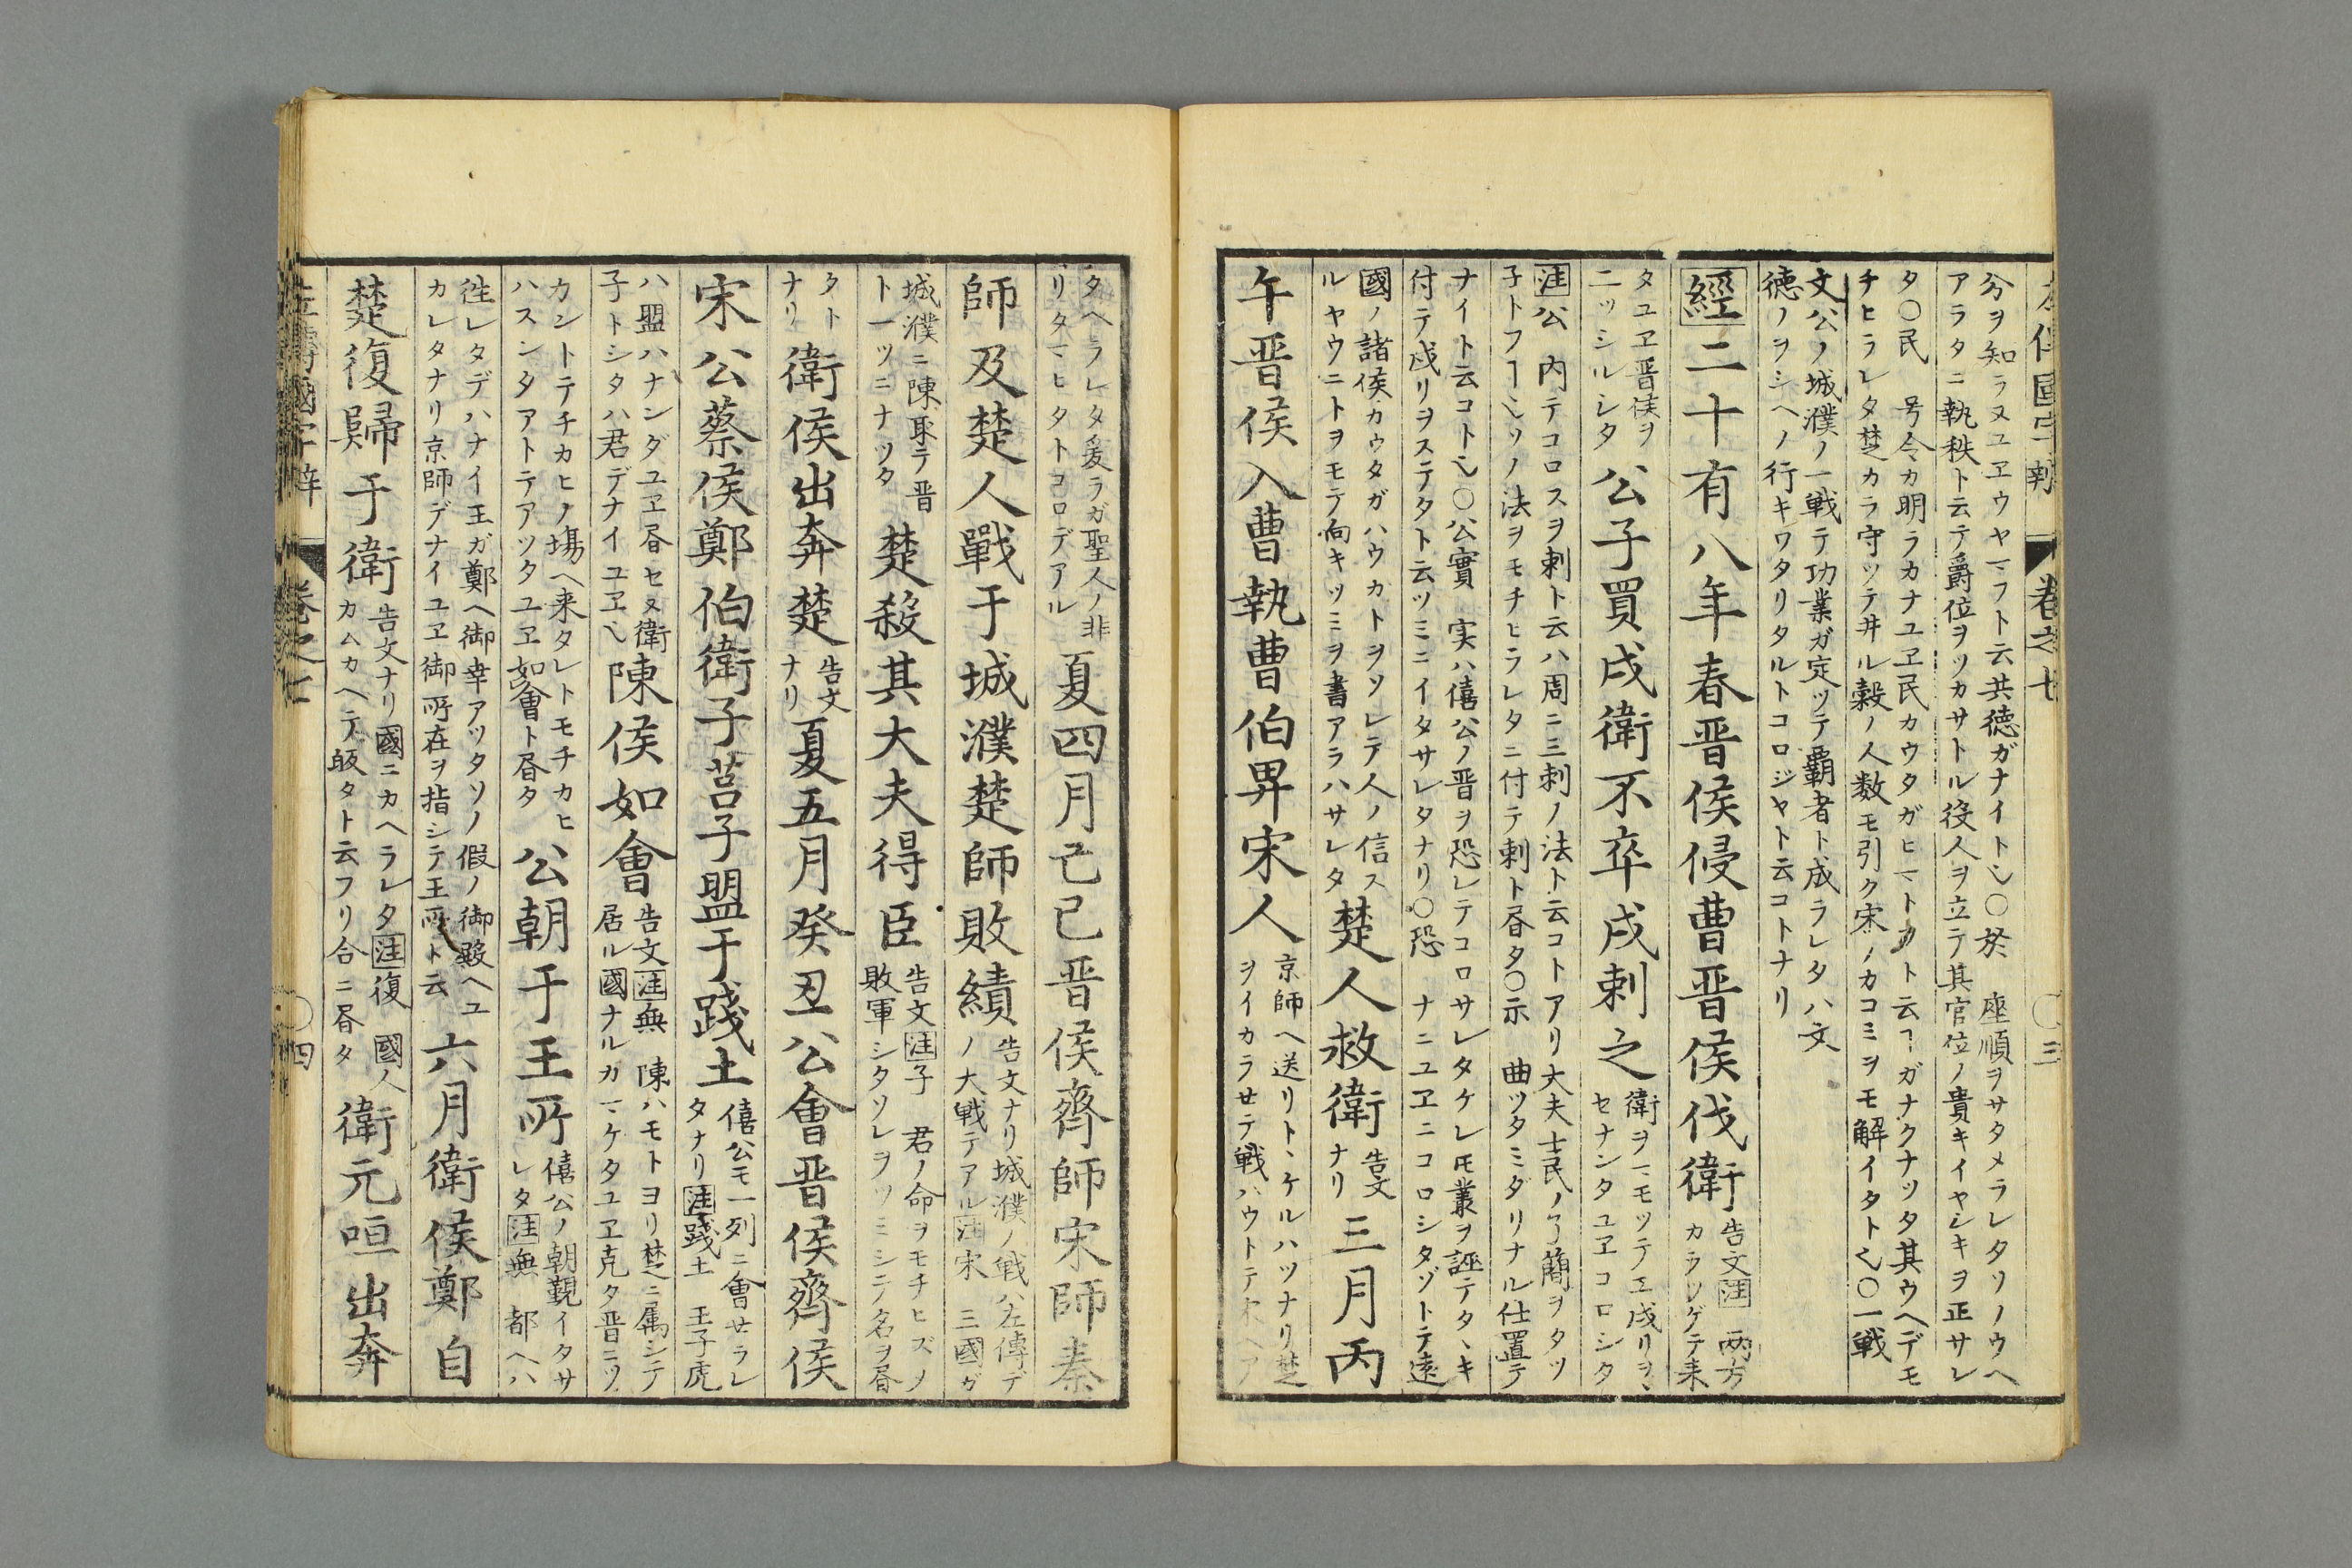 左傳國字辨 卷之七 〇三
分ヲ知ラヌユヱウヤマフト云共徳ガナイト也〇於 座順ヲサタメラレタソノウヘ
アラタニ執秩ト云テ爵位ヲツカサトル役人ヲ立テ其官位ノ貴キイヤシキヲ正サレ
タ〇民 号令カ明ラカナユヱ民カウタガヒマトカト云ヿガナクナツタ其ウヘデモ
チヒラレタ楚カラ守ツテ井ル穀ノ人数モ引ク宋ノカコミヲモ解イタト也〇一戦
文公ノ城濮ノ一戦テ功業ガ定ツテ覇者ト成ラレタハ文
徳ノヲシヘノ行キワタリタルトコロジヤト云コトナリ
經二十有八年春晋侯侵曹晋侯伐衛 告文注 兩方
カラツゲテ来
タユヱ晋侯ヲ
二ッシルシタ 公子買戍衛不卒戍刺之 衛ヲマモツテヱ戍リヲヽ
セナンタユヱコロシタ
注公 内テコロスヲ刺ト云ハ周ニ三刺ノ法ト云コトアリ大夫士民ノ了簡ヲタツ
子トフヿ也ソノ法ヲモチヒラレタニ付テ刺ト昏タ〇示 曲ツタミダリナル仕置テ
ナイト云コト也〇公實 実ハ僖公ノ晋ヲ恐レテコロサレタケレ𪜈叢ヲ誣テタヽキ
付テ戍リヲステタト云ツミニイタサレタナリ〇恐 ナニユヱニコロシタゾトテ遠
國ノ諸侯カウタガハウカトヲソレテ人ノ信ス
ルヤウニトヲモテ向キツミヲ書アラハサレタ 楚人救衛 告文
ナリ 三月丙
午晋侯入曹執曹伯畀宋人 京師ヘ送リトヽケルハツナリ楚
ヲイカラセテ戦ハウトテ宋ヘア
タヘラレタ爰ラガ聖人ノ非
リタマヒタトコロデアル 夏四月己巳晋侯齊師宋師秦
師及楚人戰于城濮楚師敗績 告文ナリ城濮ノ戦ハ左傳デ
ノ大戦テアル注宋 三國ガ
城濮ニ陳取テ晋
ト一ツニナツタ 楚殺其大夫得臣 告文注子 君ノ命ヲモチヒズノ
敗軍シタソレヲツミシテ名ヲ昏
タト
ナリ 衛侯出奔楚 告文
ナリ 夏五月癸丑公會晋侯齊侯
宋公蔡侯鄭伯衛子莒子盟于踐土 僖公モ一列ニ會セラレ
タナリ注踐土 王子虎
ハ盟ハナンダユヱ昏セヌ衛
子トシタハ君デナイユヱ也 陳侯如會 告文注無 陳ハモトヨリ楚ニ属シテ
居ル國ナルガマケタユヱ克タ晋ニツ
カントテチカヒノ塲ヘ来タレトモチカヒ
ハスンタアトテアツタユヱ如會ト昏タ 公朝于王所 僖公ノ朝覲イタサ
レタ注無 都ヘハ
徃レタデハナイ王ガ鄭ヘ御幸アツタソノ假ノ御殿ヘユ
カレタナリ京師デナイユヱ御所在ヲ指シテ王所ト云 六月衛侯鄭自
楚復歸于衛 告文ナリ國ニカヘラレタ注復 國人
カムカヘテ皈タト云フリ合ニ昏タ 衛元咺出奔
左傳國字辨 卷之七 〇四